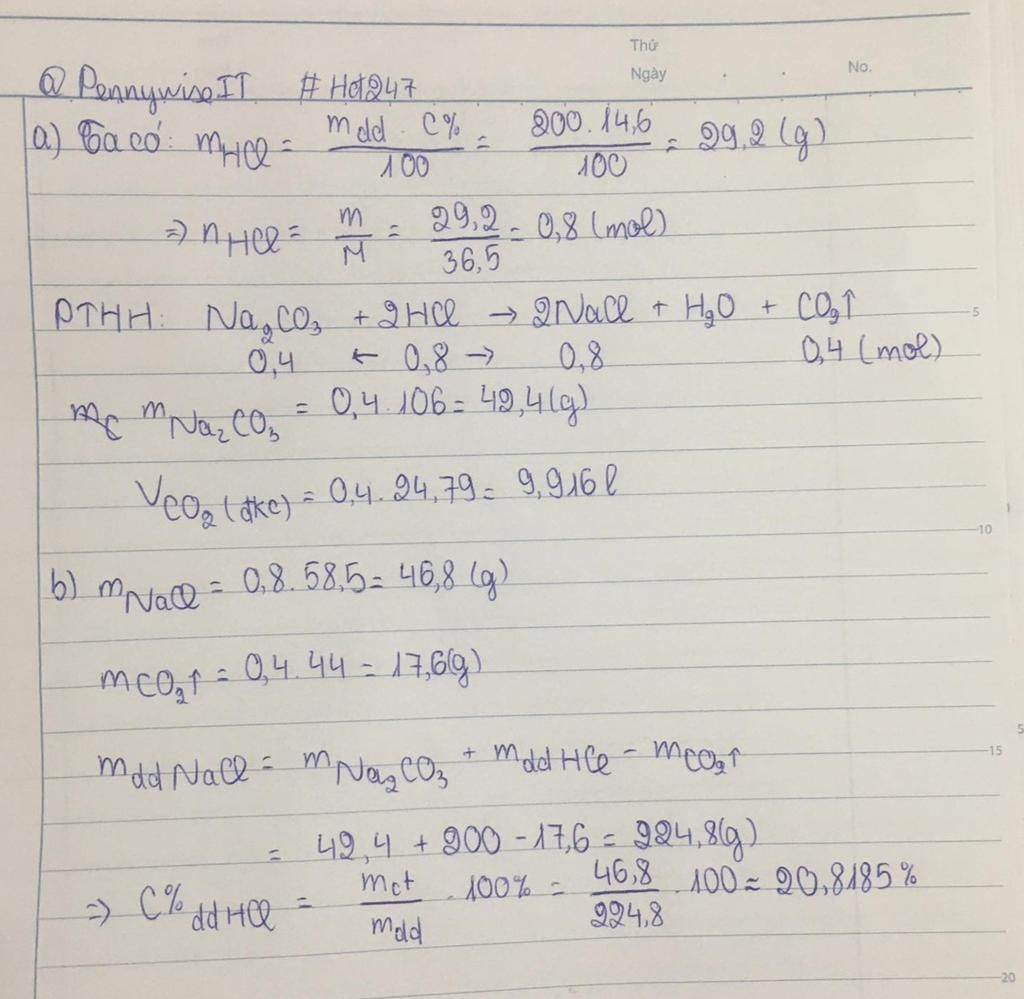 Thứ
Ngày . . No.
@ PennywiseIT #Hd247
a) Ta có: mHCl = mdd . C% / 100 = 200 . 14,6 / 100 = 29,2 (g)
⇒ nHCl = m / M = 29,2 / 36,5 = 0,8 (mol)
PTHH: Na2CO3 + 2HCl → 2NaCl + H2O + CO2↑
5
0,4 ← 0,8 → 0,8 0,4 (mol)
mC mNa2CO3 = 0,4 . 106 = 42,4 (g)
VCO2 (đkc) = 0,4 . 24,79 = 9,916 l
10
b) mNaCl = 0,8 . 58,5 = 46,8 (g)
mCO2↑ = 0,4 . 44 = 17,6 (g)
mddNaCl = mNa2CO3 + mddHCl - mCO2↑
15
= 42,4 + 200 - 17,6 = 224,8 (g)
⇒ C% ddHCl = mct / mdd . 100% = 46,8 / 224,8 . 100 = 20,8185%
20